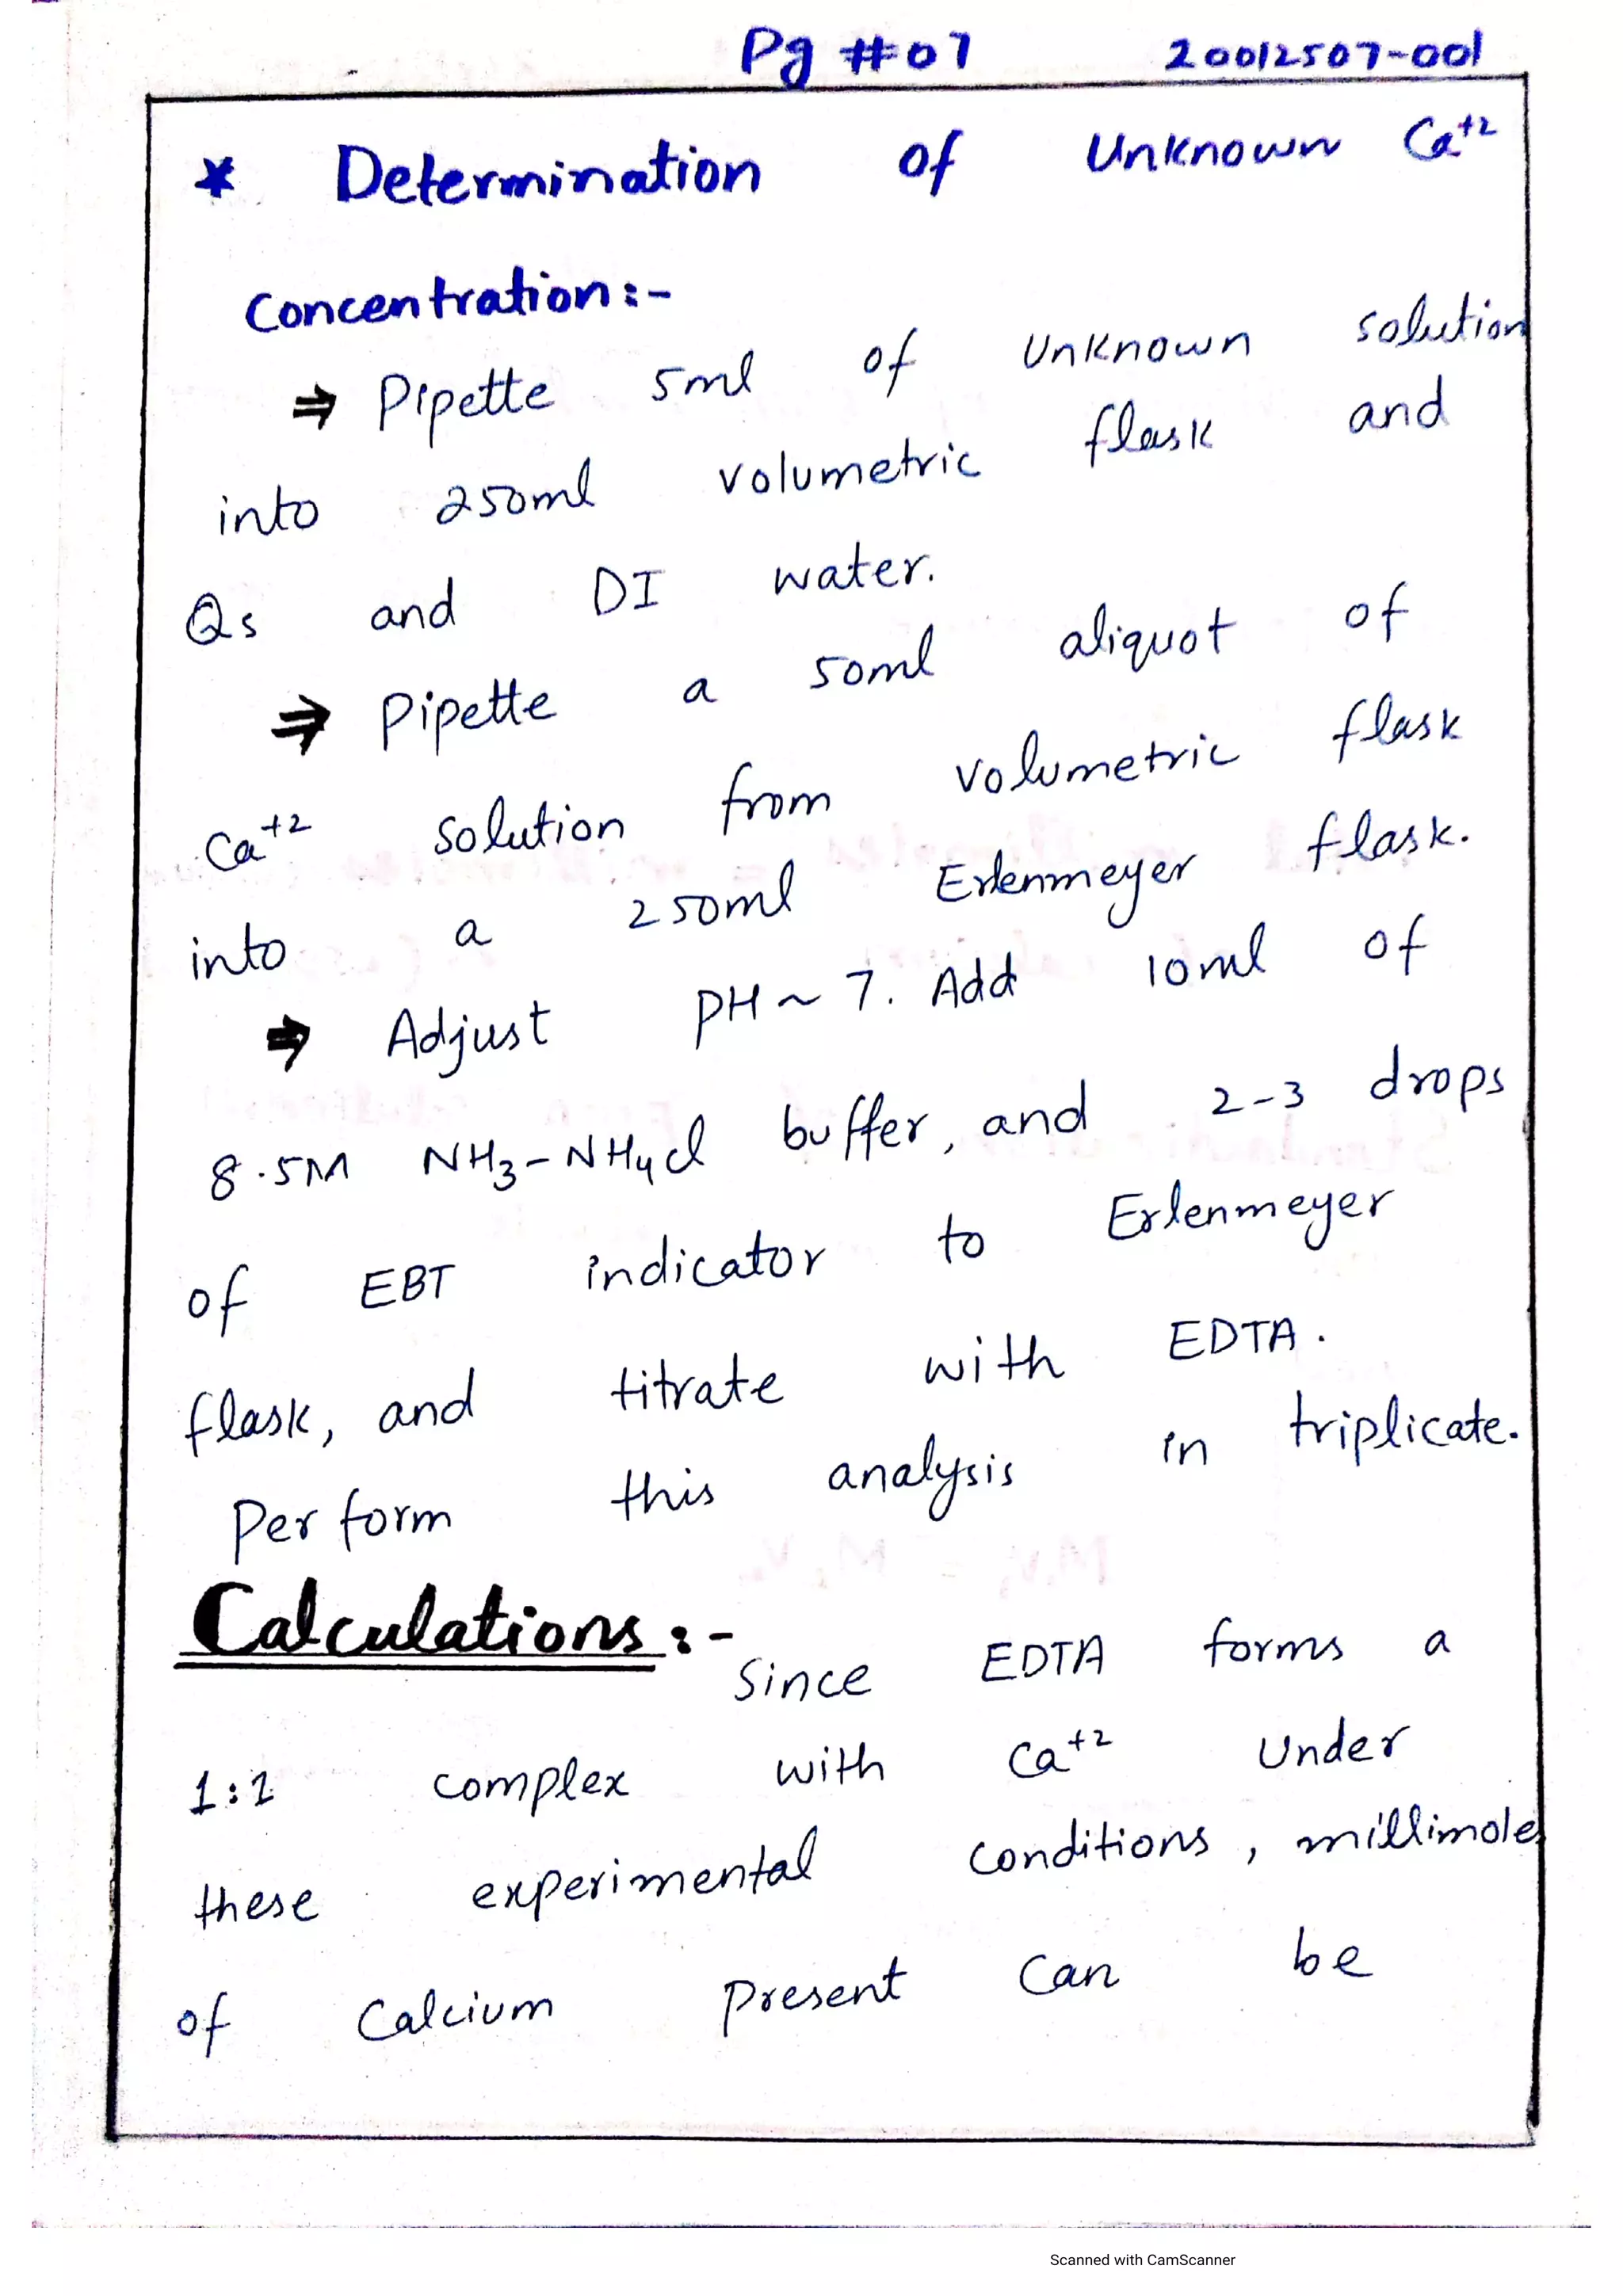 Pg #07 20012507-001
* Determination of Unknown Ca+2
Concentration:-
⇒ Pipette 5ml of Unknown solution
into 250ml volumetric flask and
Qs and DI water.
⇒ Pipette a 50ml aliquot of
Ca+2 solution from volumetric flask
into a 250ml Erlenmeyer flask.
⇒ Adjust PH ~ 7. Add 10ml of
8.5M NH3-NH4Cl buffer, and 2-3 drops
of EBT indicator to Erlenmeyer
flask, and titrate with EDTA.
Perform this analysis in triplicate.
Calculations:-
Since EDTA forms a
1:1 complex with Ca+2 Under
these experimental conditions, millimoles
of Calcium Present Can be
Scanned with CamScanner